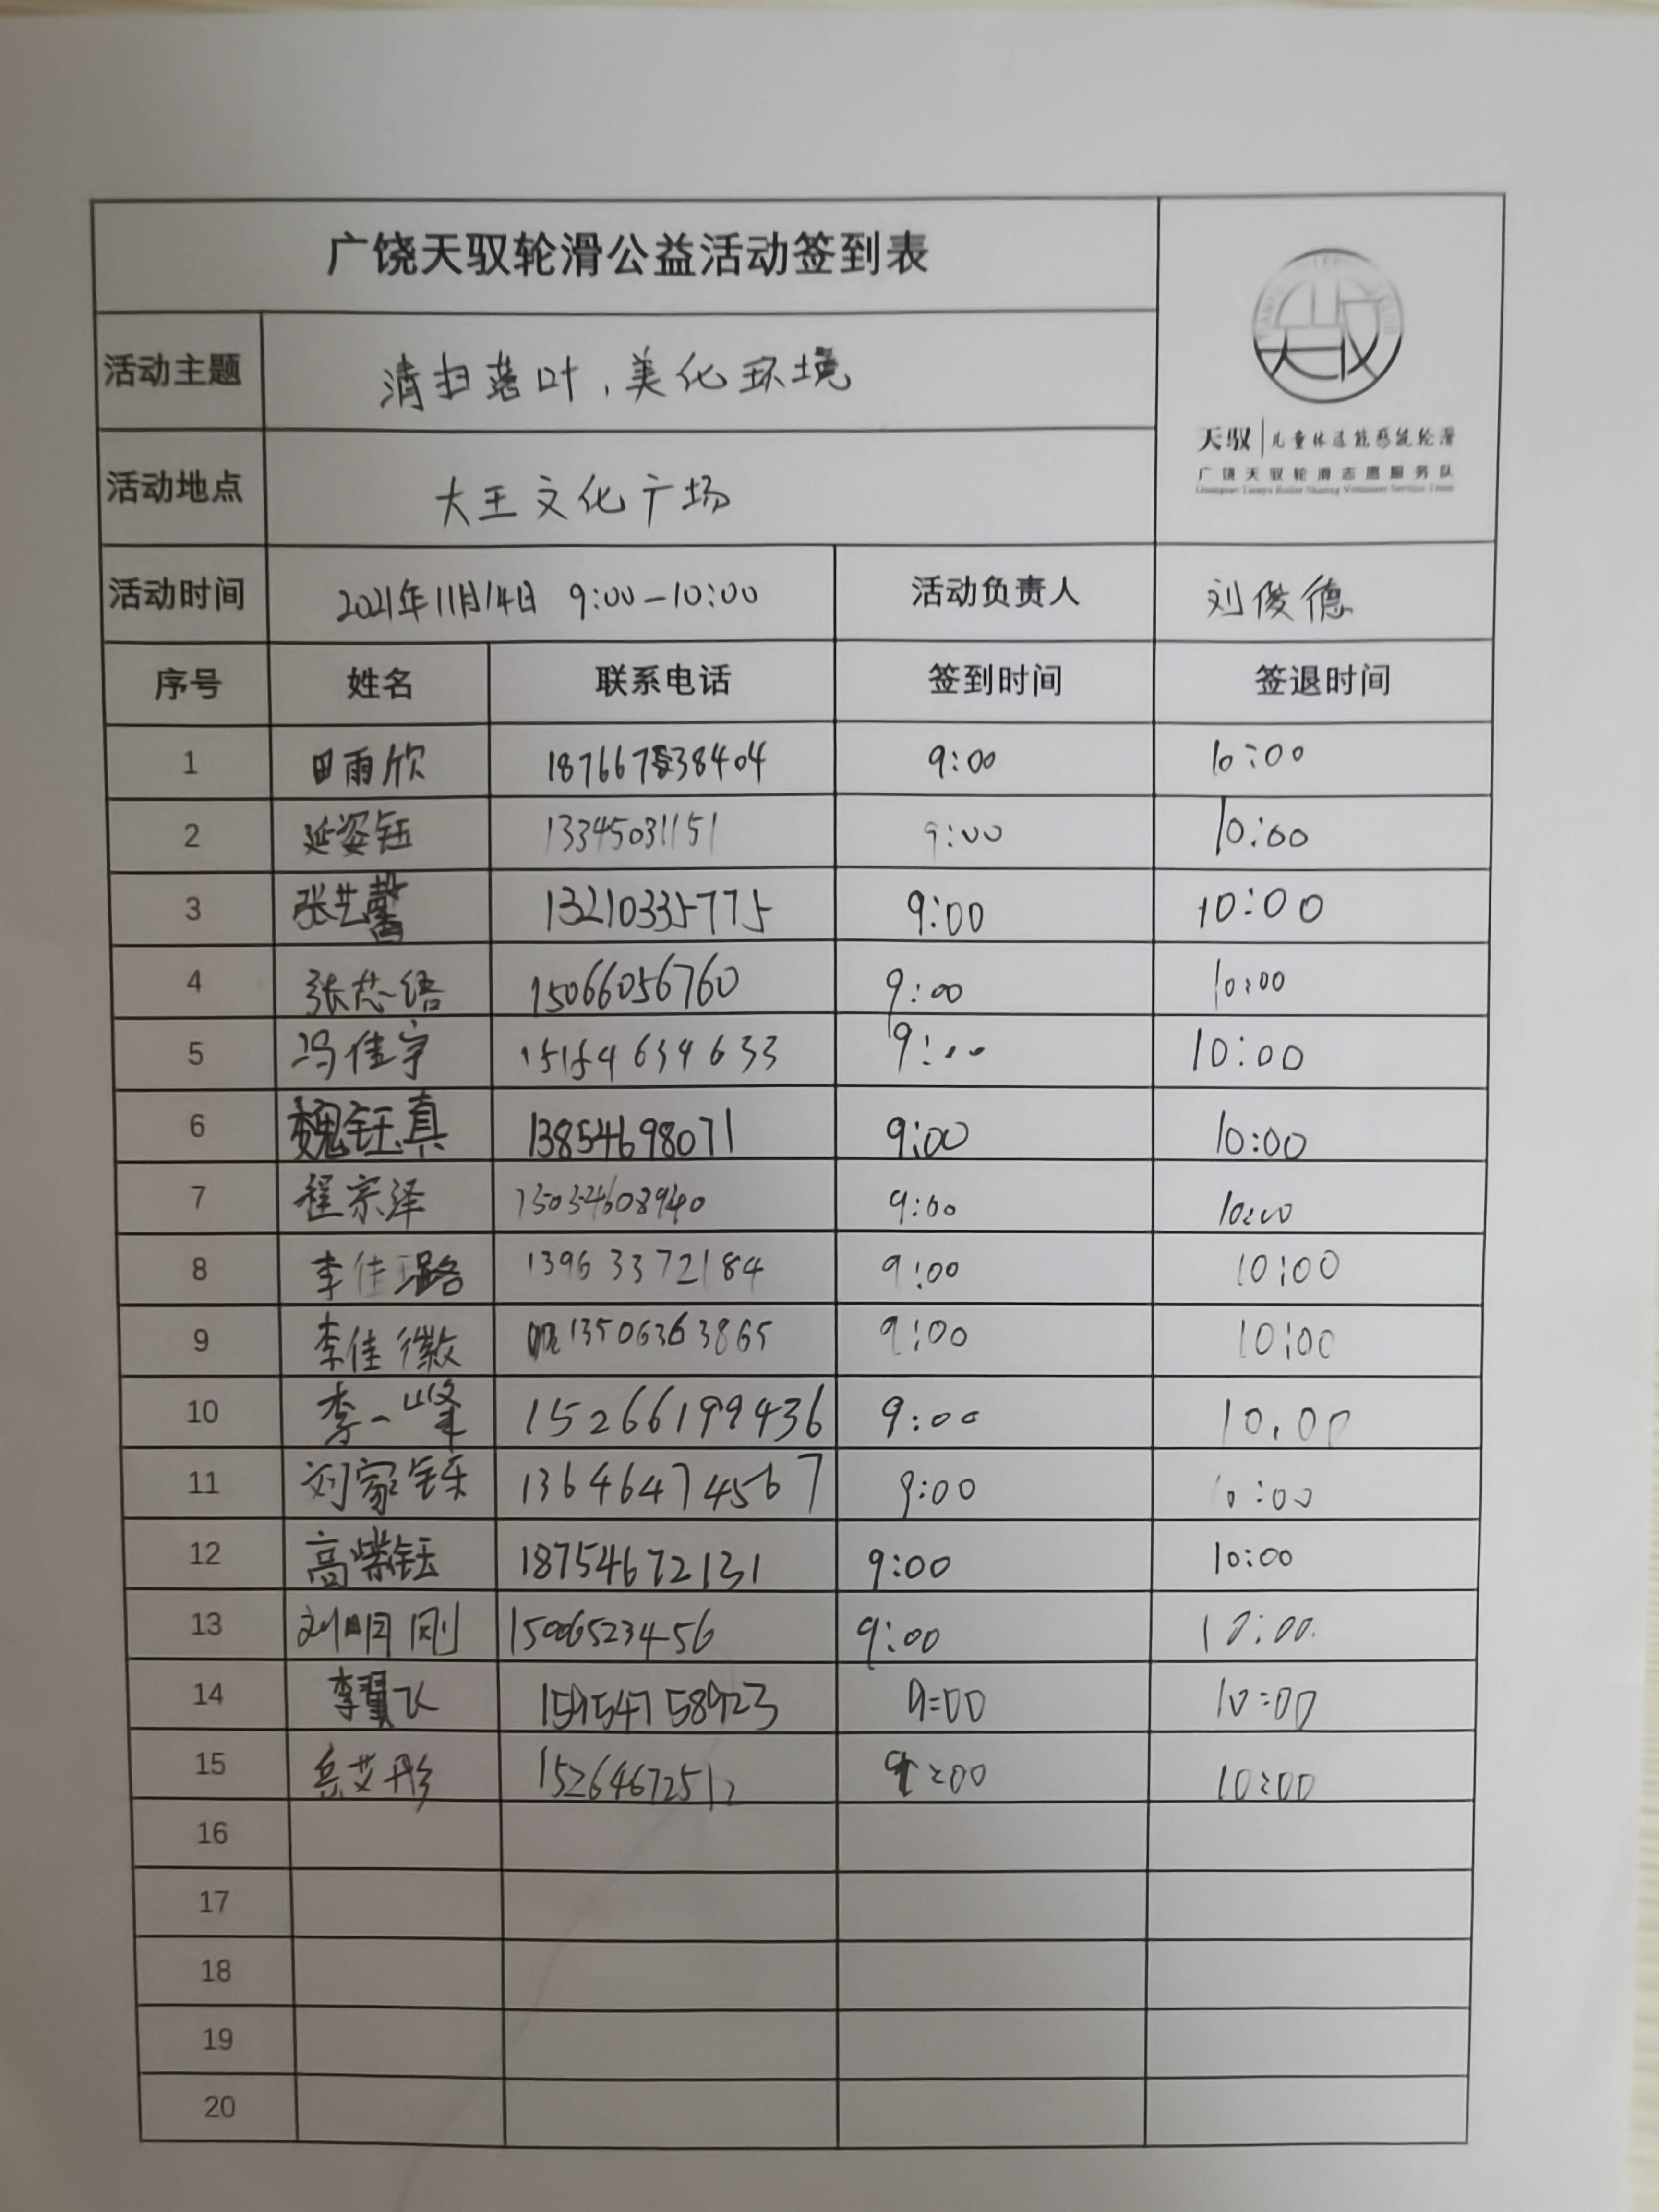 广饶天驭轮滑公益活动签到表
天驭
广饶天驭轮滑志愿服务队
活动主题 清扫落叶,美化环境
活动地点 大王文化广场
活动时间 2021年11月14日 9:00-10:00 活动负责人 刘俊德
序号 姓名 联系电话 签到时间 签退时间
1 田雨欣 9:00 10:00
2 延姿钰 13345031151 9:00 10:00
3 张艺馨 13210335775 9:00 10:00
4 张芯语 15066056760 9:00 10:00
5 冯佳宇 15154634633 9:00 10:00
6 魏钰真 13854698071 9:00 10:00
7 程宗泽 9:00 10:00
8 李佳璐 13963372184 9:00 10:00
9 李佳徽 13506363865 9:00 10:00
10 李一峰 15266199436 9:00 10.00
11 刘家铄 13646474567 9:00 10:00
12 高紫钰 18754672131 9:00 10:00
13 刘明刚 15006523456 9:00 10:00
14 李翼飞 15954758923 9:00 10:00
15 岳艾彤 15264672512 9:00 10:00
16
17
18
19
20